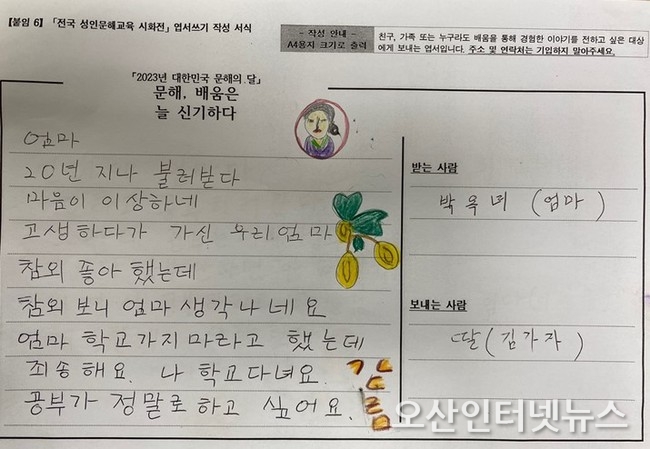 [붙임 6] 「전국 성인문해교육 시화전」 엽서쓰기 작성 서식
- 작성 안내 -
A4용지 크기로 출력
친구, 가족 또는 누구라도 배움을 통해 경험한 이야기를 전하고 싶은 대상
에게 보내는 엽서입니다. 주소 및 연락처는 기입하지 말아주세요.
「2023년 대한민국 문해의 달」
문해, 배움은
늘 신기하다
엄마
20년 지나 불러받다
마음이 이상하네
고생하다가 가신 우리엄마
참외 좋아 했는데
참외 보니 엄마 생각나네요
엄마 학교가지마라고 했는데
죄송해요. 나 학교다녀요.
공부가 정말로하고 싶어요.
받는 사람
박옥녀 (엄마)
보내는 사람
딸(김가자)
오산인터넷뉴스